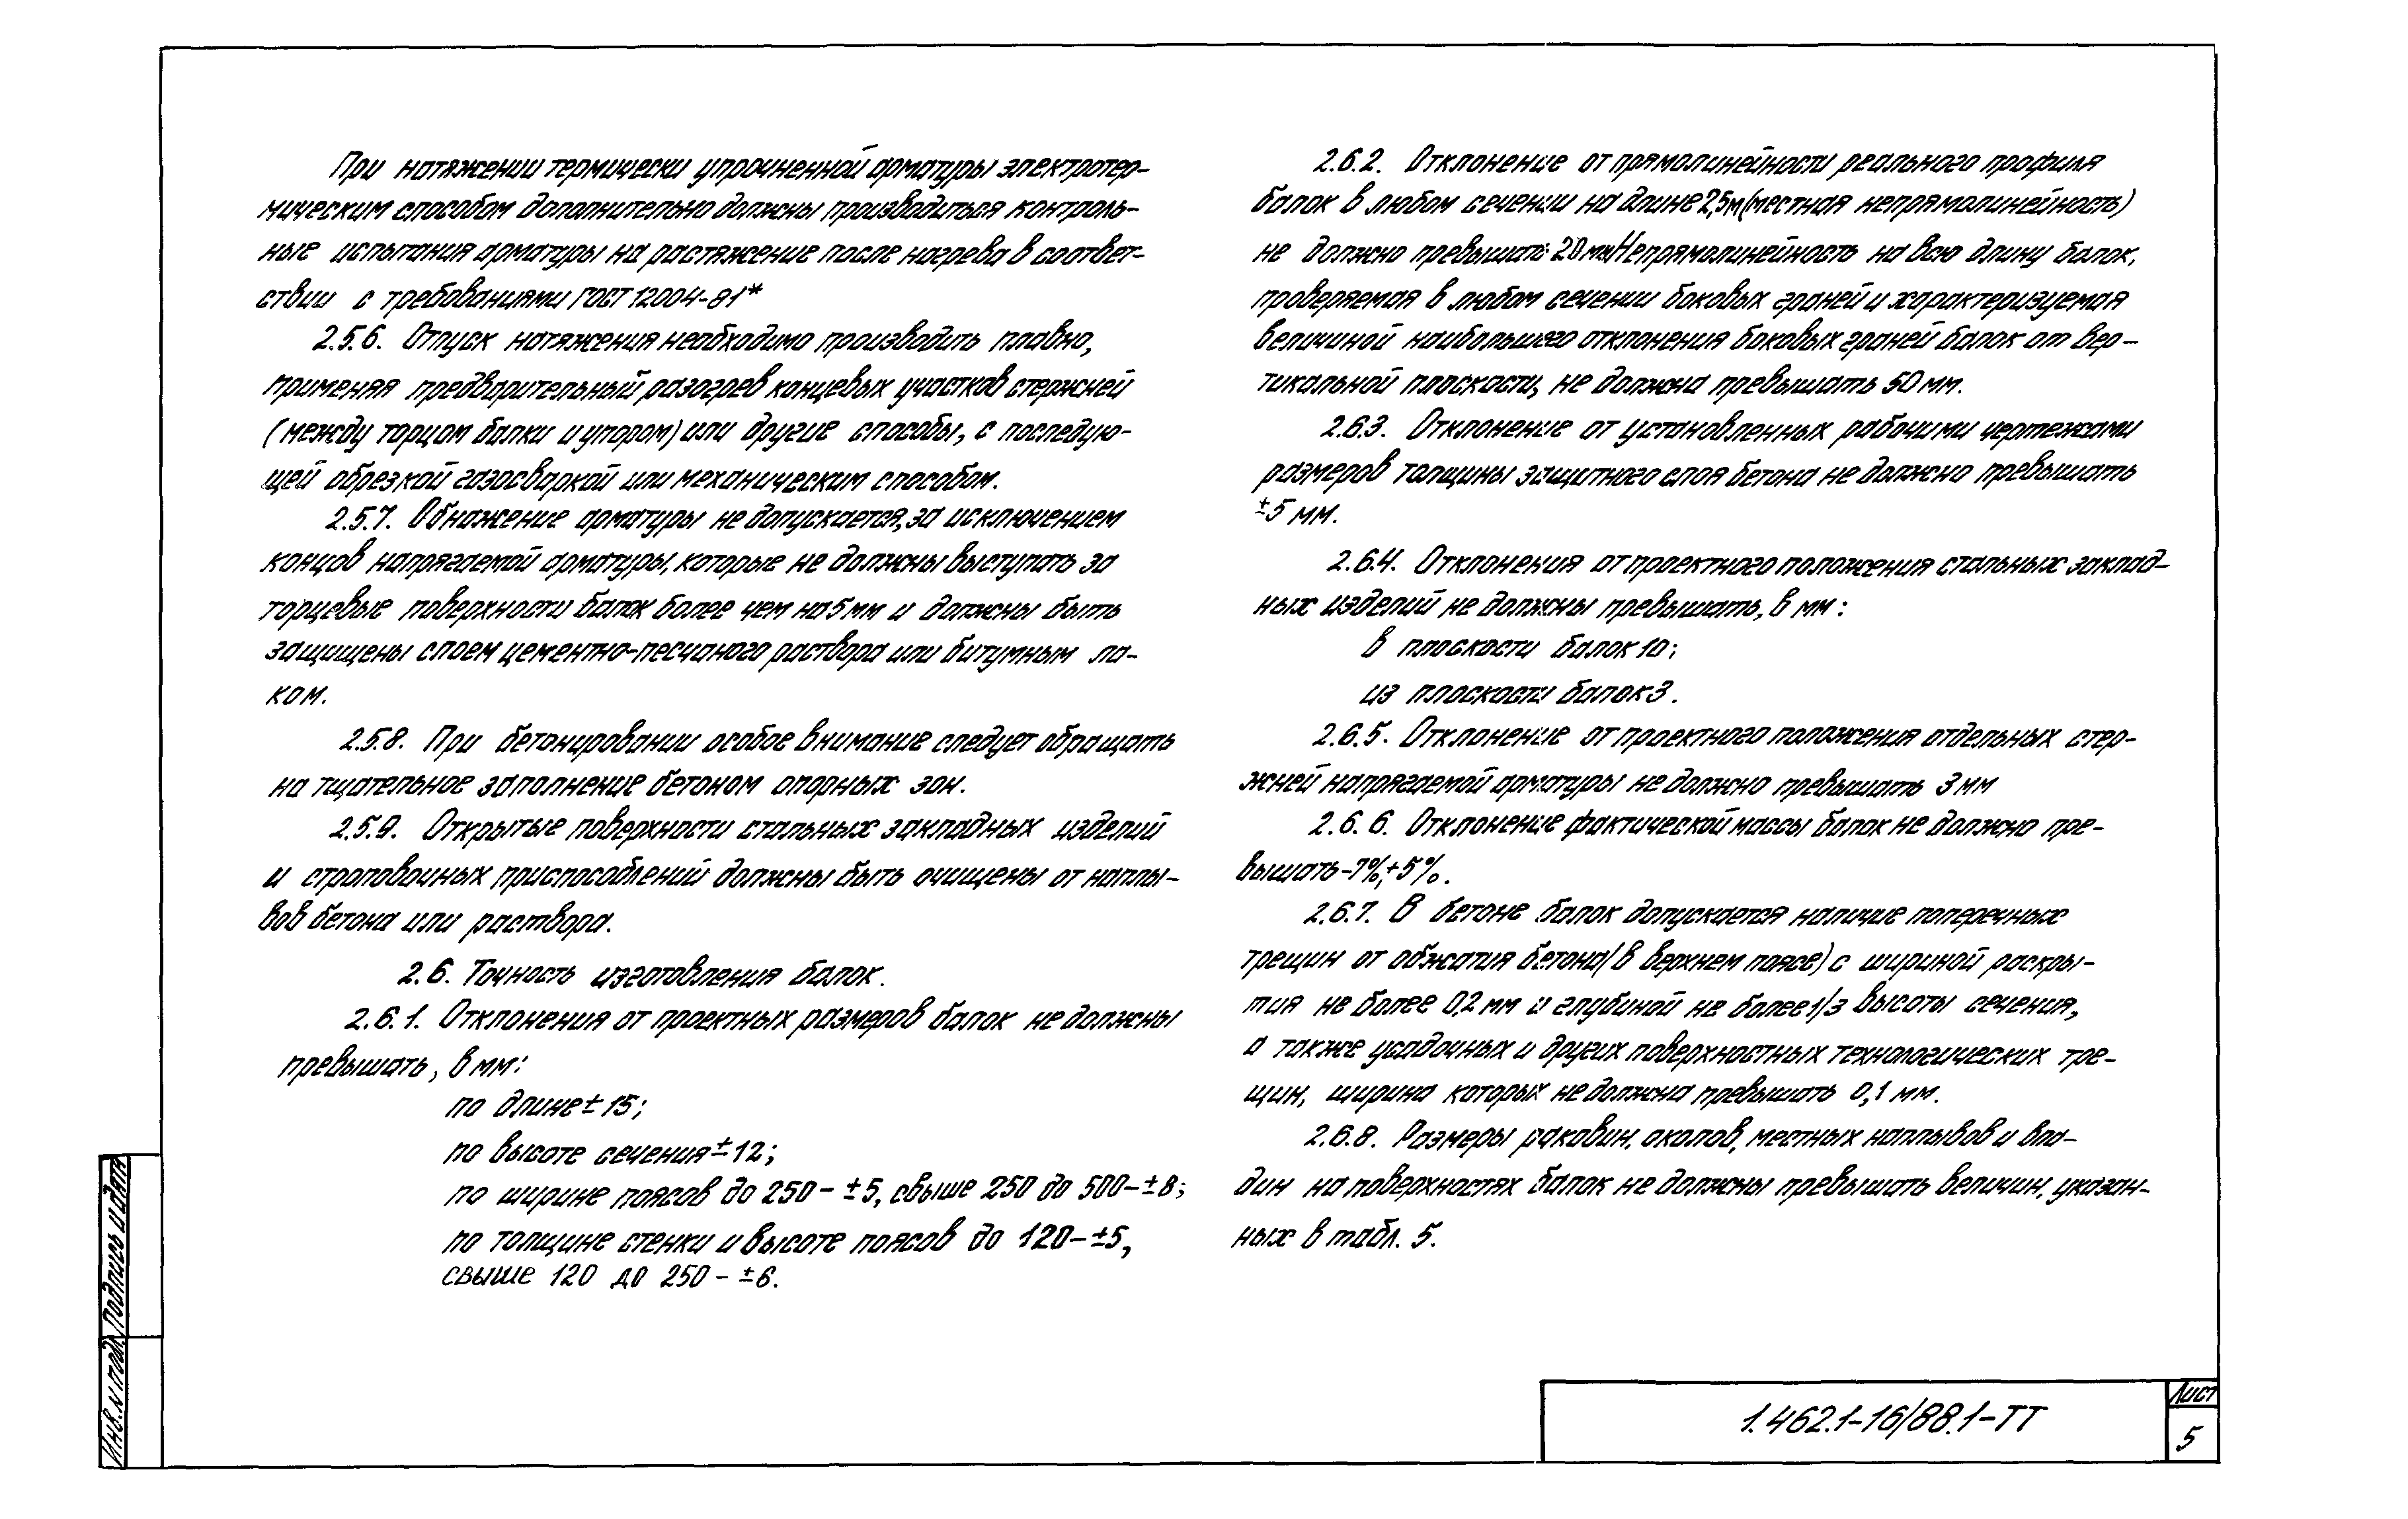 При натяжении термически упрочненной арматуры электротер-
мическим способом дополнительно должны производиться контроль-
ные испытания арматуры на растяжение после нагрева в соответ-
ствии с требованиями ГОСТ 12004-81*
2.5.6. Отпуск натяжения необходимо производить плавно,
применяя предварительный разогрев концевых участков стержней
(между торцом балки и упором) или другие способы, с последую-
щей обрезкой газосваркой или механическим способом.
2.5.7. Обнажение арматуры не допускается, за исключением
концов напрягаемой арматуры, которые не должны выступать за
торцевые поверхности балок более чем на 5 мм и должны быть
защищены слоем цементно-песчаного раствора или битумным ла-
ком.
2.5.8. При бетонировании особое внимание следует обращать
на тщательное заполнение бетоном опорных зон.
2.5.9. Открытые поверхности стальных закладных изделий
и строповочных приспособлений должны быть очищены от наплы-
вов бетона или раствора.
2.6. Точность изготовления балок.
2.6.1. Отклонения от проектных размеров балок не должны
превышать, в мм:
по длине ± 15;
по высоте сечения ± 12;
по ширине поясов до 250 - ±5, свыше 250 до 500 - ±8;
по толщине стенки и высоте поясов до 120 - ±5,
свыше 120 до 250 - ±6.
2.6.2. Отклонение от прямолинейности реального профиля
балок в любом сечении на длине 2,5м (местная непрямолинейность)
не должно превышать 20 мм. Непрямолинейность на всю длину балок,
проверяемая в любом сечении боковых граней и характеризуемая
величиной наибольшего отклонения боковых граней балок от вер-
тикальной плоскости, не должна превышать 50 мм.
2.6.3. Отклонение от установленных рабочими чертежами
размеров толщины защитного слоя бетона не должно превышать
±5 мм.
2.6.4. Отклонения от проектного положения стальных заклад-
ных изделий не должны превышать, в мм:
в плоскости балок 10;
из плоскости балок 3.
2.6.5. Отклонение от проектного положения отдельных стер-
жней напрягаемой арматуры не должно превышать 3 мм
2.6.6. Отклонение фактической массы балок не должно пре-
вышать -7%, +5%.
2.6.7. В бетоне балок допускается наличие поперечных
трещин от обжатия бетона (в верхнем поясе) с шириной раскры-
тия не более 0,2 мм и глубиной не более 1/3 высоты сечения,
а также усадочных и других поверхностных технологических тре-
щин, ширина которых не должна превышать 0,1 мм.
2.6.8. Размеры раковин, околов, местных наплывов и впа-
дин на поверхностях балок не должны превышать величин, указан-
ных в табл. 5.
Инв.N подл. Подпись и дата
1.462.1-16/88.1-ТТ
Лист
5